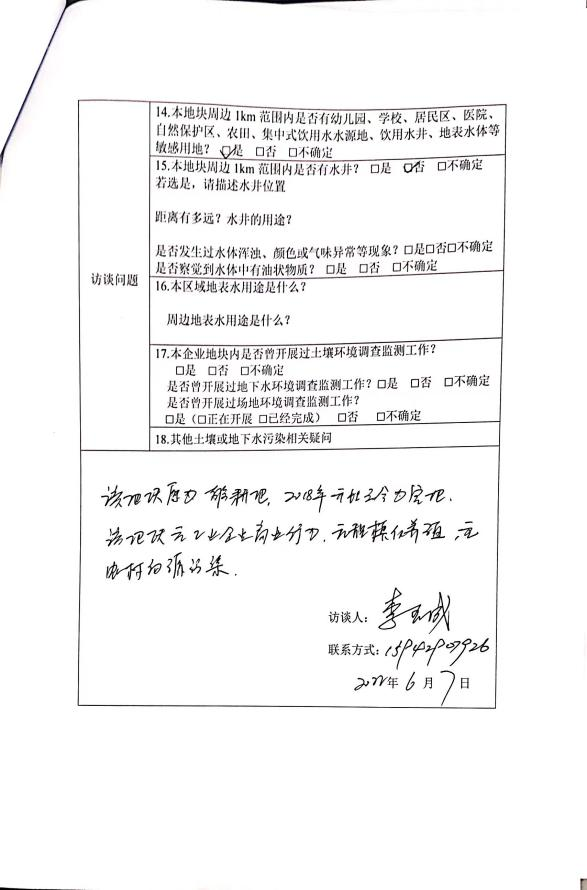 14.本地块周边 1km 范围内是否有幼儿园、学校、居民区、医院、
自然保护区、农田、集中式饮用水水源地、饮用水井、地表水体等
敏感用地？ ☑是 □否 □不确定
15.本地块周边 1km 范围内是否有水井？ □是 ☑否 □不确定
若选是，请描述水井位置
距离有多远？水井的用途？
是否发生过水体浑浊、颜色或气味异常等现象？□是□否□不确定
是否察觉到水体中有油状物质？ □是 □否 □不确定
访谈问题
16.本区域地表水用途是什么？
周边地表水用途是什么？
17.本企业地块内是否曾开展过土壤环境调查监测工作？
□是 □否 □不确定
是否曾开展过地下水环境调查监测工作？□是 □否 □不确定
是否曾开展过场地环境调查监测工作？
□是（□正在开展 □已经完成） □否 □不确定
18.其他土壤或地下水污染相关疑问
该地块原为 耕地, 2018年 至今为空地.
该地块无工业企业 , 无规模化养殖, 无
农村 污染.
访谈人：李玉成
联系方式：15942907926
2022年 6 月 7 日